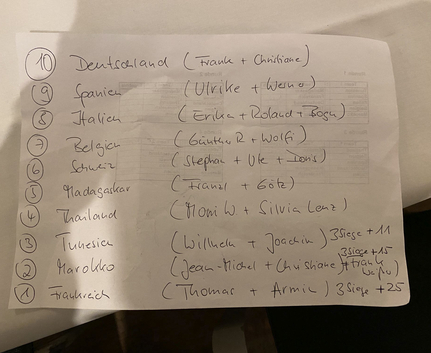 10 Deutschland (Frank + Christiane)
9 Spanien (Ulrike + Werno)
8 Italien (Erika + Roland + Bogn)
7 Belgien (Günther R + Wolfi)
6 Schweiz (Stephan + Ute + Doris)
5 Madagaskar (Franzl + Götz)
4 Thailand (Moni W + Silvia Lenz)
3 Tunesien (Wilhelm + Joachim) 3 Siege + 11
3 Siege + 15
2 Marokko (Jean-Michel + Christiane) + Frank
1 Frankreich (Thomas + Armin) 3 Siege + 25